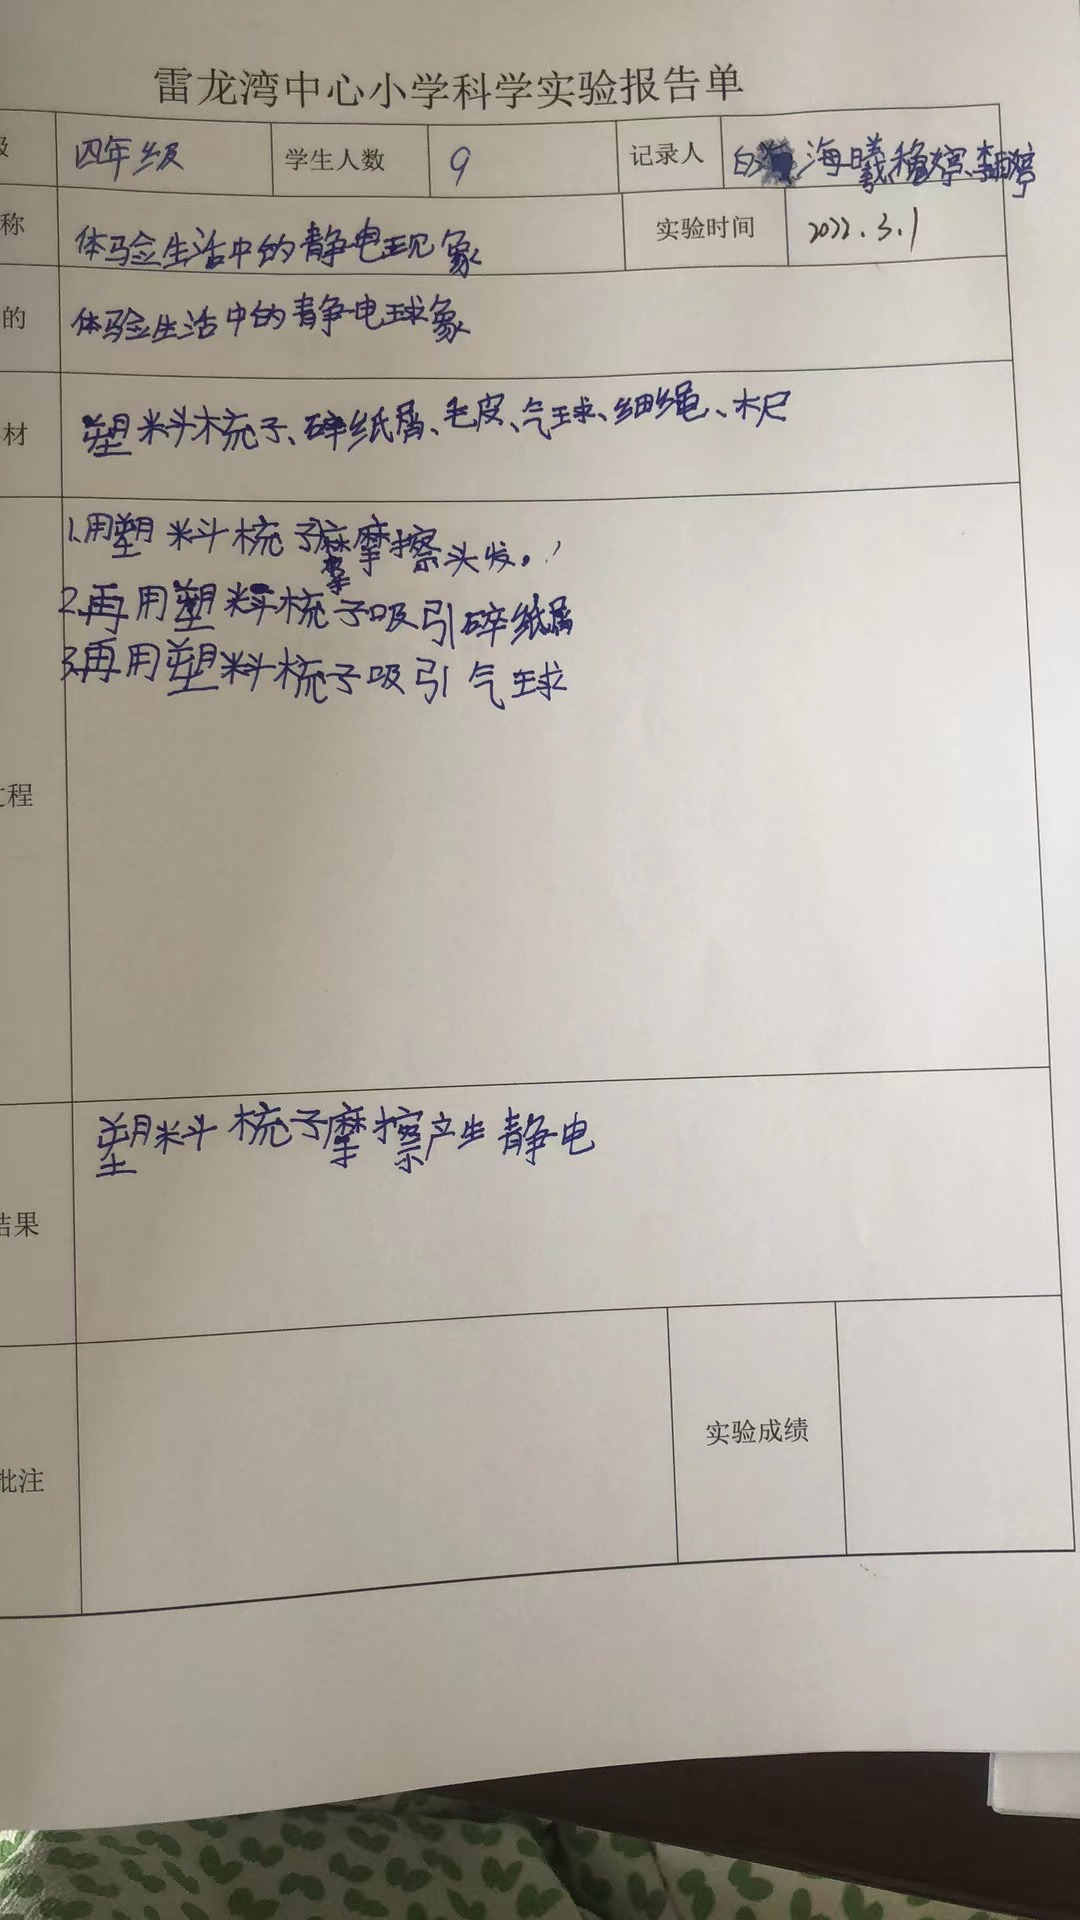 雷龙湾中心小学科学实验报告单
级 四年级 学生人数 9 记录人 白 海曦、穆婷、李雨婷
称 体验生活中的静电现象 实验时间 2022.3.1
的 体验生活中的静电球象
材 塑料梳子、碎纸屑、毛皮、气球、细绳、木尺
1.用塑料梳子摩擦头发。
2.再用塑料梳子吸引碎纸屑
3.再用塑料梳子吸引气球
过程
塑料梳子摩擦产生静电
结果
批注 实验成绩